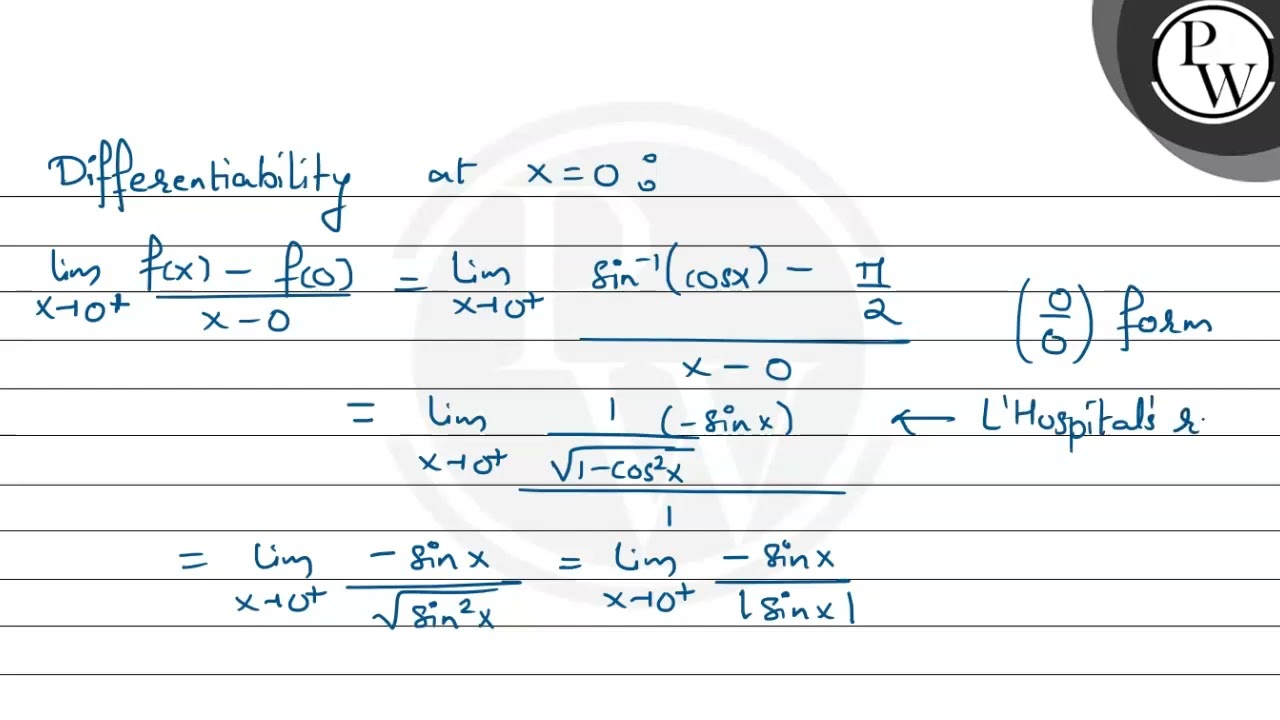 PW
Differentiability at x = 0 :
lim x→0⁺ (f(x) − f(0))/(x − 0) = lim x→0⁺ (sin⁻¹(cosx) − π/2)/(x − 0) (0/0) form
= lim x→0⁺ (1/√(1−cos²x) (−sinx))/1 ← L'Hospital's r.
= lim x→0⁺ (−sinx)/√(sin²x) = lim x→0⁺ (−sinx)/|sinx|